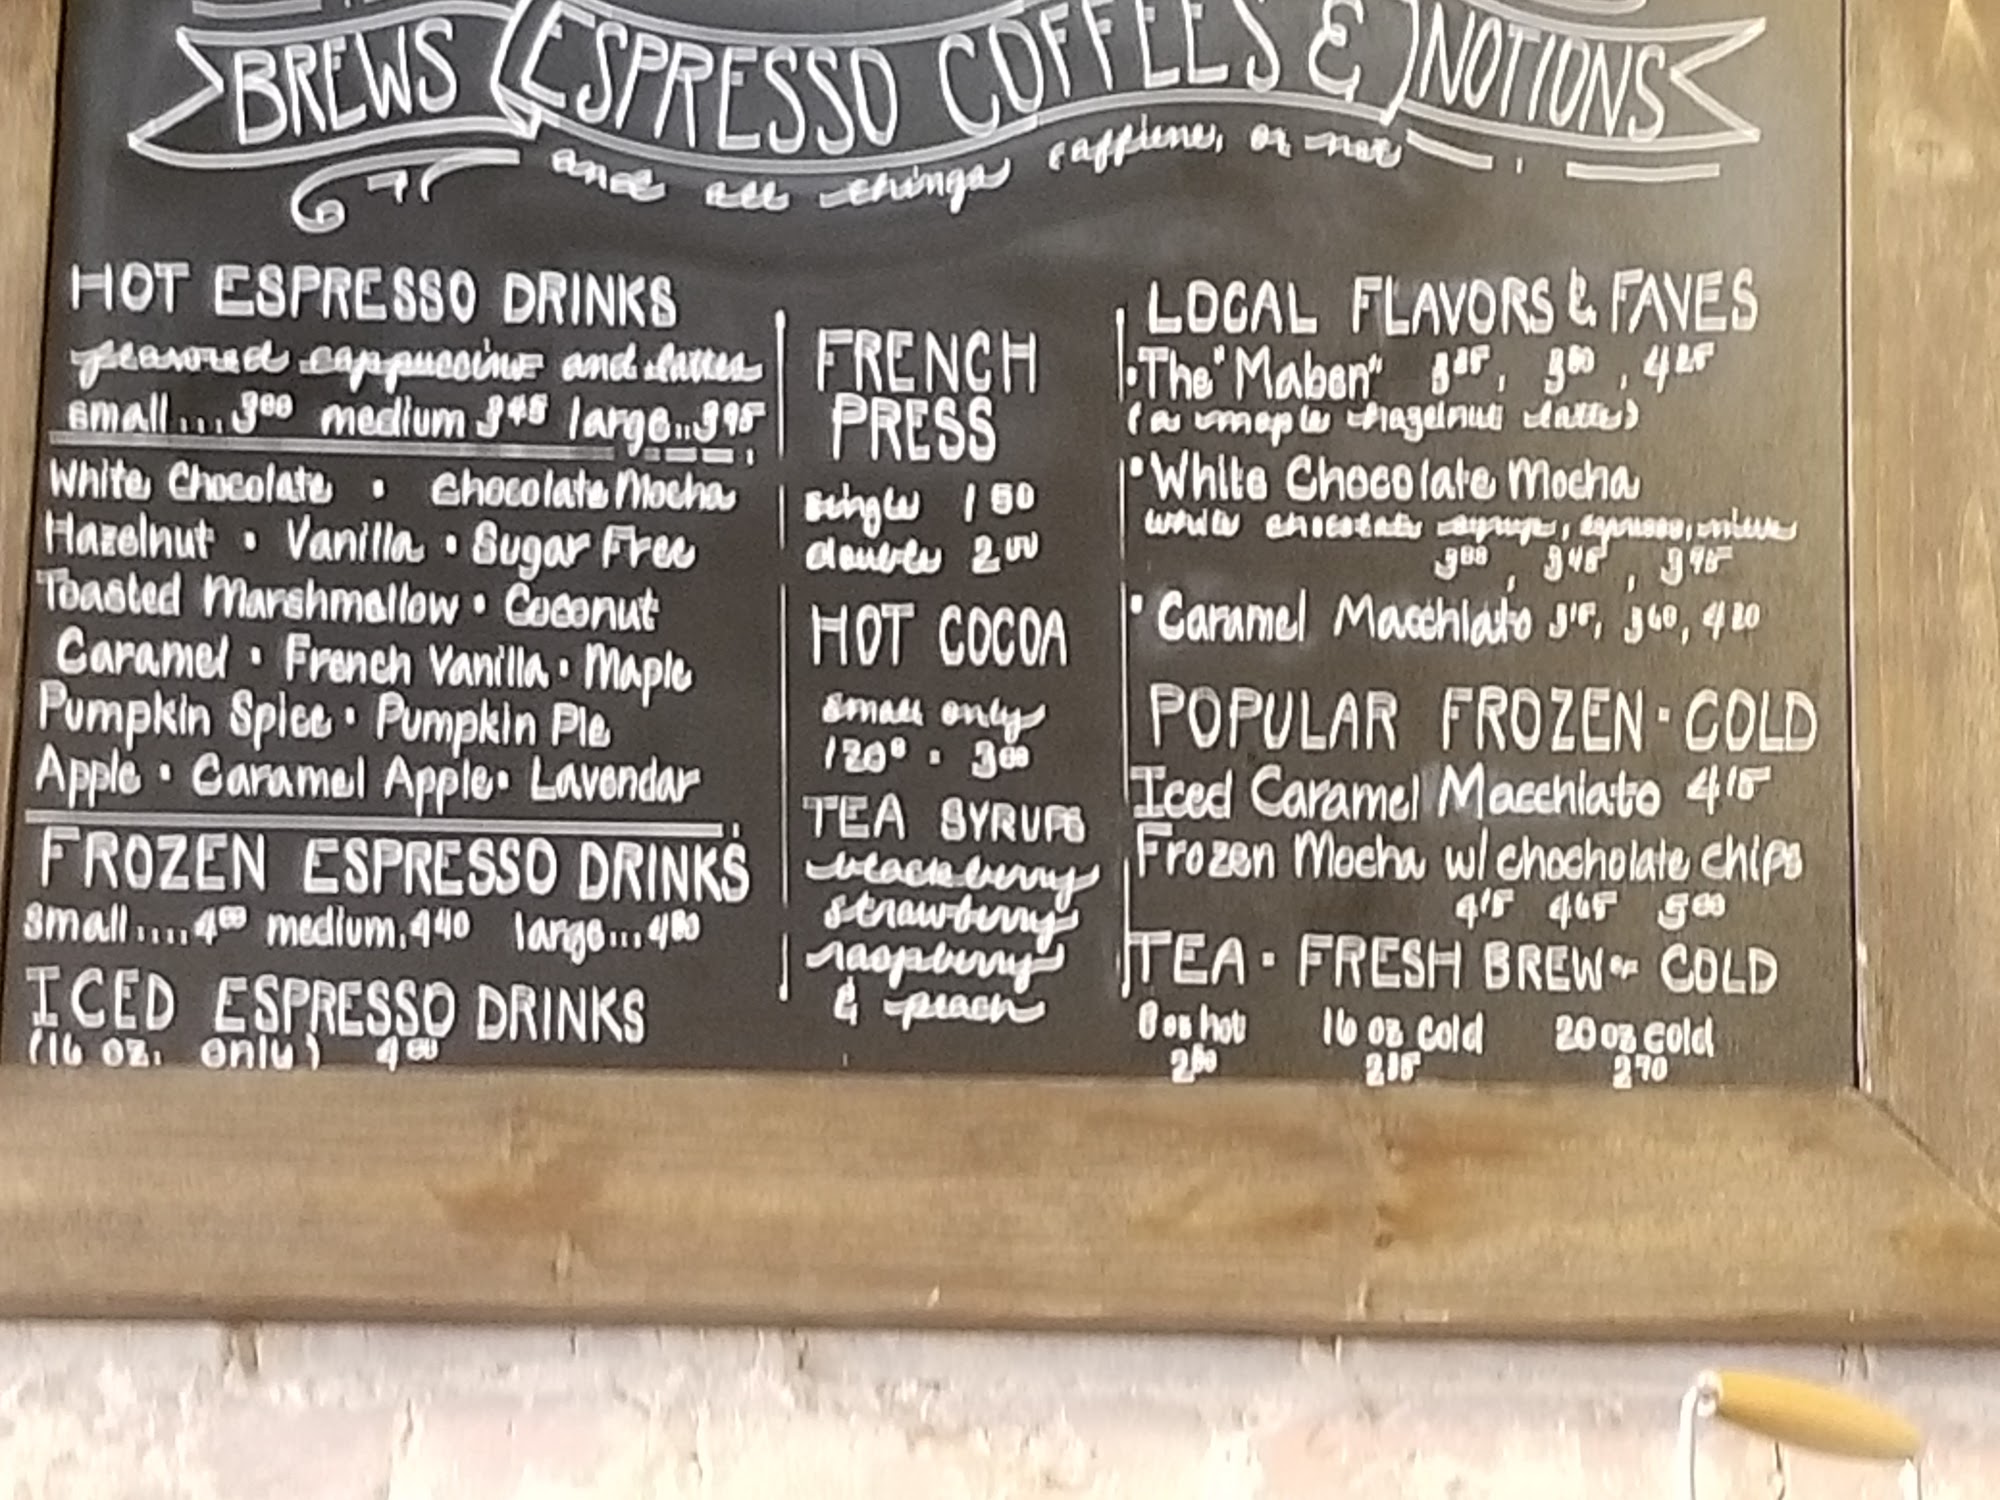 BREWS ESPRESSO COFFEES & NOTIONS
and all things caffiene, or not
HOT ESPRESSO DRINKS
flavored cappuccino and lattes
small...3.00 medium 3.45 large..3.95
White Chocolate · Chocolate Mocha
Hazelnut · Vanilla · Sugar Free
Toasted Marshmallow · Coconut
Caramel · French Vanilla · Maple
Pumpkin Spice · Pumpkin Pie
Apple · Caramel Apple · Lavendar
FROZEN ESPRESSO DRINKS
small....4.00 medium.4.40 large...4.80
ICED ESPRESSO DRINKS
(16 oz. only) 4.00
FRENCH
PRESS
single 1.50
double 2.00
HOT COCOA
small only
120° · 3.00
TEA SYRUPS
blackberry
strawberry
raspberry
& peach
LOCAL FLAVORS & FAVES
· The "Maben" 3.25, 3.80, 4.25
(a maple hazelnut latte)
· White Chocolate Mocha
white chocolate syrup, espresso, milk
3.00, 3.45, 3.95
· Caramel Macchiato 3.15, 3.60, 4.20
POPULAR FROZEN · COLD
Iced Caramel Macchiato 4.15
Frozen Mocha w/ chocholate chips
4.15 4.65 5.00
TEA · FRESH BREW or COLD
8 oz hot 16 oz cold 20 oz cold
2.70